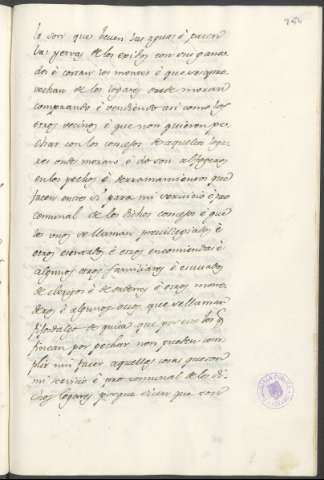 lo son que beuen las aguas é pacen
las yervas de los exidos con sus ganados
é cortan los montes é que se aprovechan
de los logares onde moran
comprando é vendiendo asi como los
otros vecinos é que non quieren pechar
con los concejos de aquellos logares
onde moran é do son
en los pechos é derramamientos que
facen entre si para mi servicio é pro
comunal de los dichos concejos é que
los unos se llaman previllegiados é
otros escusados é otros encomendados é
algunos otros familiares é escusados
de clerigos é de ordenes é otros monederos
é algunos otros que se llaman
fijosdalgo de guisa que por esto los q̃
fincan por pechar non pueden complir
nin facer aquellas cosas que son
mi servicio é pro comunal de los dichos
logares porque dicen que son